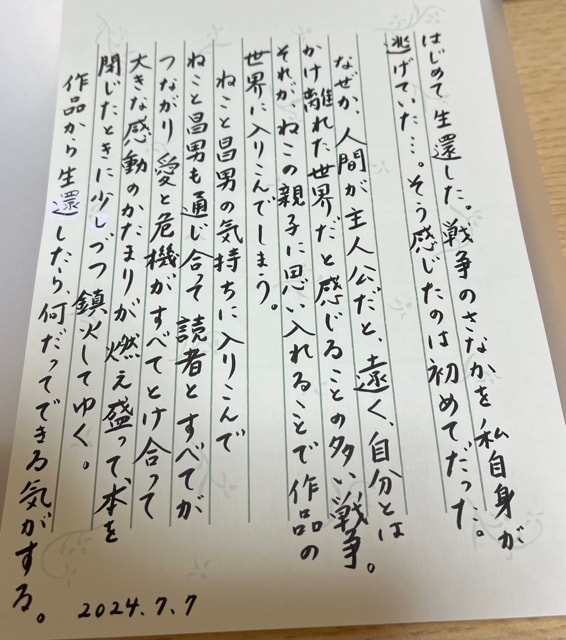 はじめて生還した。戦争のさなかを私自身が
逃げていた…。そう感じたのは初めてだった。
なぜか、人間が主人公だと、遠く、自分とは
かけ離れた世界だと感じることの多い戦争。
それがねこの親子に思い入れることで作品の
世界に入りこんでしまう。
ねこと昌男の気持ちに入りこんで
ねこと昌男も通じ合って読者とすべてが
つながり愛と危機がすべてとけ合って
大きな感動のかたまりが燃え盛って、本を
閉じたときに少しづつ鎮火してゆく。
作品から生還したら、何だってできる気がする。
2024.7.7